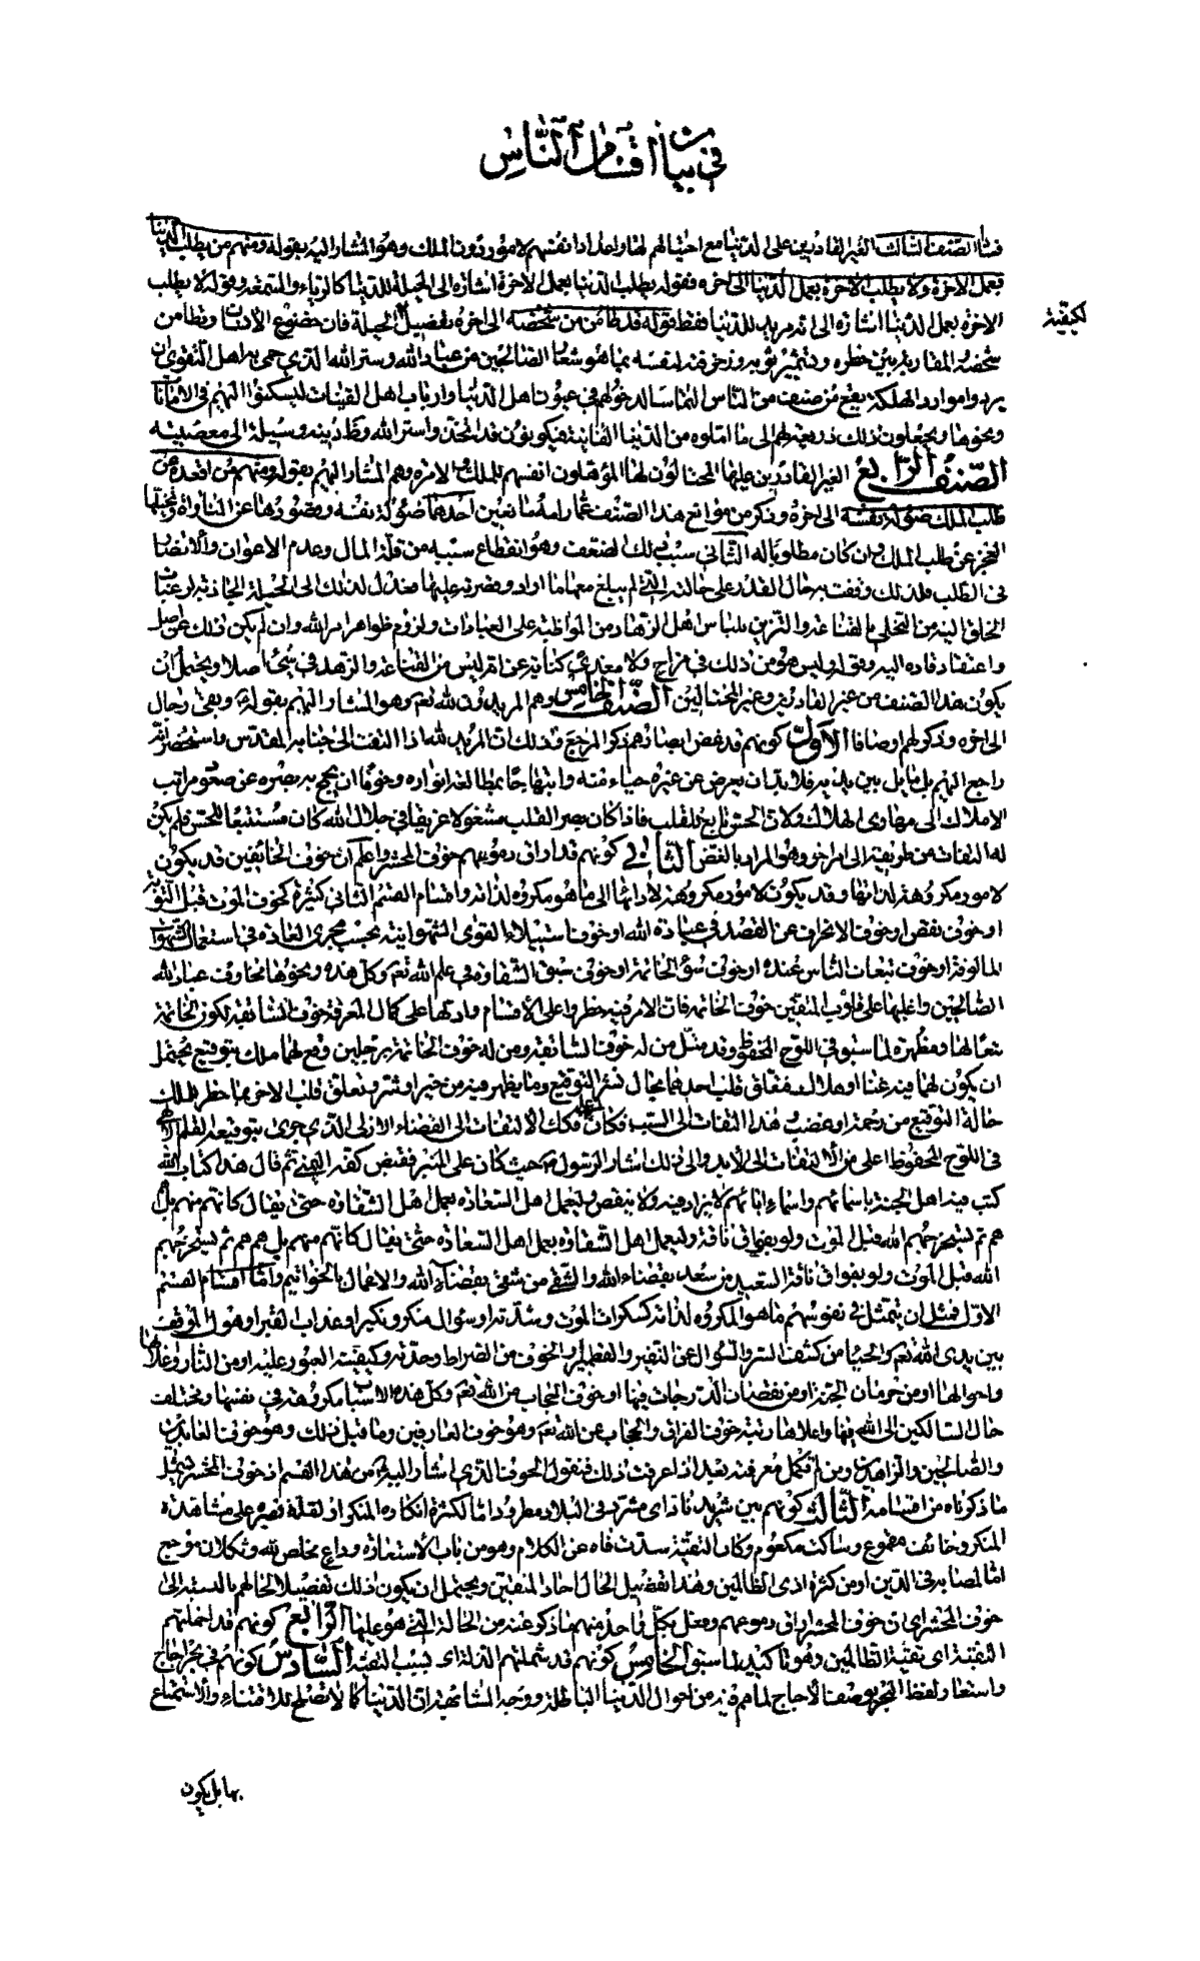 في بيان اقسام الناس
الصنف الثالث الغير القادرين على الدنيا مع احتيالهم لها واعداد انفسهم لامور دون الملك وهو المشار اليه بقوله ومنهم من يطلب الدنيا
بعمل الاخرة ولا يطلب الاخرة بعمل الدنيا الى اخره فقوله يطلب الدنيا بعمل الاخرة اشارة الى الحيلة للدنيا كالرياء والسمعة وقوله لا يطلب
الاخرة بعمل الدنيا اشارة الى انه مريد للدنيا فقط قوله قد طامن من شخصه الى اخره تفصيل الحيلة فان خضوع
لكيفية
شخصه المقاربة بين خطوه وتشمير ثوبه وزخرفته لنفسه بما هو شعار الصالحين من عباد الله وستر الله الذي حمى به اهل التقوى ان
يردوا موارد الهلكة يقع من صنف من الناس التماسا لدخولهم في عيون اهل الدنيا وارباب اهل القينات ليسكنوا اليهم في الامانات
ونحوها ويجعلون ذلك ذريعة لهم الى ما املوه من الدنيا الفانية فيكونون قد اتخذوا ستر الله وظاهر دينه وسيلة الى معصيته
الصنف الرابع الغير القادرين عليها المحتالون لها المؤهلون انفسهم للملك والامرة وهم المشار اليهم بقوله ومنهم من اقعده عن
طلب الملك ضؤلة نفسه الى اخره وذكر من موانع هذا الصنف عما رامه مانعين احدهما ضؤلة نفسه وقصورها عن المناواة وتخيلها
العجز عن طلب الملك وان كان مطلوبا له الثاني سبب ذلك الضعف وهو انقطاع سببه من قلة المال وعدم الاعوان والانصار
في الطلب فلذلك وقفت به حال القدر على حالته التي لم يبلغ معها ما اراد وقصرته عليها فعدل لذلك الى الحيلة الجاذبة لرغبات
الخلق اليه من التحلي بالقناعة والتزين بلباس اهل الزهادة من المواظبة على العبادات ولزوم ظواهر امر الله وان لم يكن ذلك عن اصل
واعتقاد قاده اليه وقوله وليس هو من ذلك في مراح ولا مغدى كناية عن انه ليس من القناعة والزهد في شيء اصلا ويحتمل ان
يكون هذا الصنف من غير القادرين وغير المحتالين الصنف الخامس وهم المريدون لله تعالى وهو المشار اليهم بقوله وبقي رجال
الى اخره وذكر لهم اوصافا الاول كونهم قد غض ابصارهم ذكر المرجع وذلك ان المريد لله اذا التفت الى جنابه المقدس واستحضر انه
راجع اليه بل ماثل بين يديه فلا بد ان يعرض عن غيره حياء منه وابتهاجا بمطالعة انواره وخوفا ان يجمح به بصره عن صعود مراتب
الاملاك الى مهاوى الهلاك ولان الحس تابع للقلب فاذا كان بصر القلب مشغولا غريقا في جلال الله كان مستتبعا للحس فلم يكن
له التفات من طريقه الى امر اخر وهو المراد بالغض الثاني كونهم قد اراق دموعهم خوف المحشر واعلم ان خوف الخائفين قد يكون
لامور مكروهة لذاتها وقد يكون لامور مكروهة لادائها الى ما هو مكروه لذاته واقسام القسم الثاني كثيرة كخوف الموت قبل التوبة
او خوف نقض او خوف الانحراف عن القصد في عبادة الله او خوف استيلاء القوى الشهوانية بحسب مجرى العادة في استعمال الشهوات
المالوفة او خوف تبعات الناس عنده او خوف سوء الخاتمة او خوف سبق الشقاوة في علم الله تعالى وكل هذه ونحوها مخاوف عباد الله
الصالحين واغلبها على قلوب المتقين خوف الخاتمة فان الامر فيه خطر واعلى الاقسام وادلها على كمال المعرفة خوف السابقة لكون الخاتمة
تبعا لها ومظهرة لما سبق في اللوح المحفوظ وقد مثل من له خوف السابقة ومن له خوف الخاتمة برجلين وقع لهما ملك بتوقيع يحتمل
ان يكون لهما فيه غنا او هلاك فتعلق قلب احدهما بحال نشر التوقيع وما يظهر فيه من خير او شر وتعلق قلب الاخر بما خطر للملك
حالة التوقيع من رحمة او غضب وهذا التفات الى السبب فكان اعلى فكذلك الالتفات الى القضاء الازلي الذي جرى بتوقيعه القلم الالهي
في اللوح المحفوظ اعلى من الالتفات الى الابد والى ذلك اشار الرسول حيث كان على المنبر فقبض كفه اليمنى ثم قال هذا كتاب الله
كتب فيه اهل الجنة باسمائهم واسماء ابائهم لا يزاد فيه ولا ينقص وليعمل اهل السعادة بعمل اهل الشقاوة حتى يقال كانهم منهم بل
هم هم ثم يستخرجهم الله قبل الموت ولو بفواق ناقة وليعمل اهل الشقاوة بعمل اهل السعادة حتى يقال كانهم منهم بل هم هم ثم يستخرجهم
الله قبل الموت ولو بفواق ناقة السعيد من سعد بقضاء الله والشقي من شقي بقضاء الله والاعمال بالخواتيم واما اقسام القسم
الاول فمثل ان يتمثل في نفوسهم ما هو المكروه لذاته كسكرات الموت وشدته او سؤال منكر ونكير او عذاب القبر او هول الموقف
بين يدى الله تعالى والحياء من كشف الستر والسؤال عن النقير والقطمير او الخوف من الصراط وحدته وكيفية العبور عليه او من النار واغلالها
واحوالها او من حرمان الجنة او من نقصان الدرجات فيها او خوف الحجاب من الله تعالى وكل هذه الاسباب مكروهة في نفسها ومختلف
حال السالكين الى الله فيها واعلاها رتبة خوف الفراق والحجاب عن الله تعالى وهو خوف العارفين وما قبل ذلك وهو خوف العابدين
والصالحين والزاهدين ومن لم تكمل معرفته بعد اذا عرفت ذلك فنقول الخوف الذي اشار اليه من هذا القسم اذ خوف المحشر يشمل
ما ذكرناه من اقسامه الثالث كونهم بين شريد ناد اى مشرد في البلاد مطرود اما لكثرة انكاره المنكر او لقلة صبره على مشاهدة
المنكر وخائف مقموع وساكت مكعوم وكان التقية سدت فاه عن الكلام وهو من باب الاستعارة وداع مخلص لله وثكلان موجع
اما لمصابه في الدين او من كثرة اذى الظالمين وهذا تفصيل الحال احاد المتقين ويحتمل ان يكون ذلك تفصيلا لحالهم بالنسبة الى
خوف المحشر اى ان خوف المحشر اراق دموعهم وفعل بكل واحد منهم ما ذكر عنه من الحالة التي هو عليها الرابع كونهم قد اخملتهم
التقية اى تقية الظالمين وهو تاكيد لما سبق الخامس كونهم قد شملتهم الذلة اى بسبب التقية السادس كونهم في بحر اجاج
واستعار لفظ البحر بصفة الاجاج لما هم فيه من احوال الدنيا الباطلة ووجه المشابهة ان الدنيا كما لا تصلح للاقتناء والاستمتاع
بها بل يكون